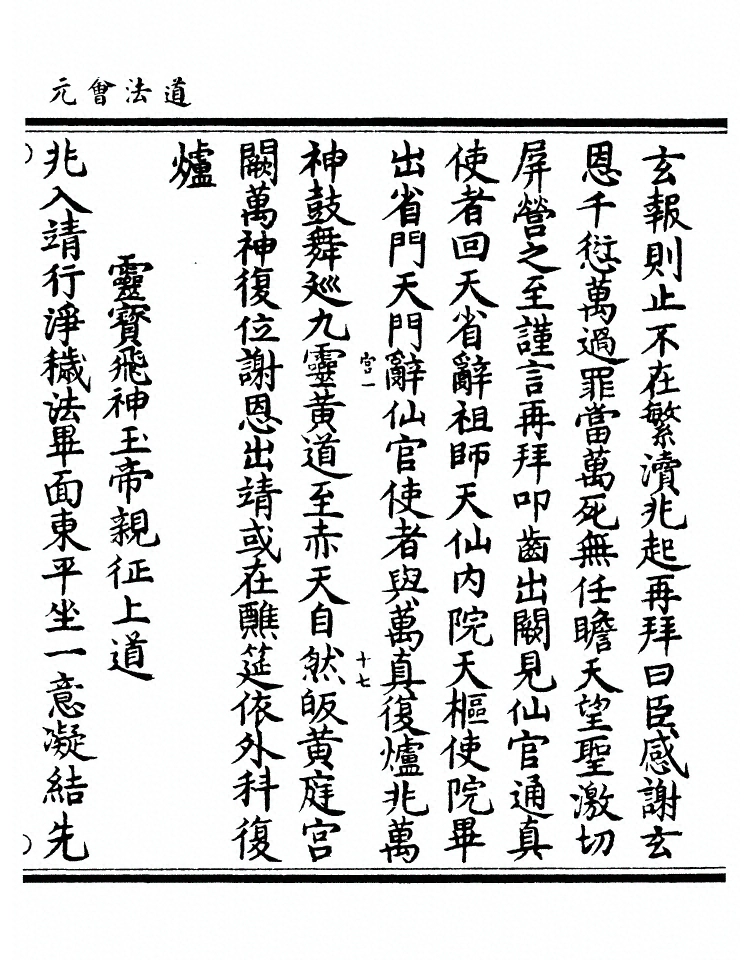 道法會元
玄報則止不在繁瀆兆起再拜曰臣感謝玄
恩千愆萬過罪當萬死無任瞻天望聖激切
屏營之至謹言再拜叩齒出闕見仙官通真
使者回天省辭祖師天仙內院天樞使院畢
出省門天門辭仙官使者與萬真復爐兆萬
宮一
十七
神鼓舞巡九靈黃道至赤天自然皈黃庭宮
闕萬神復位謝恩出靖或在醮筵依外科復
爐
靈寶飛神玉帝親征上道
兆入靖行淨穢法畢面東平坐一意凝結先